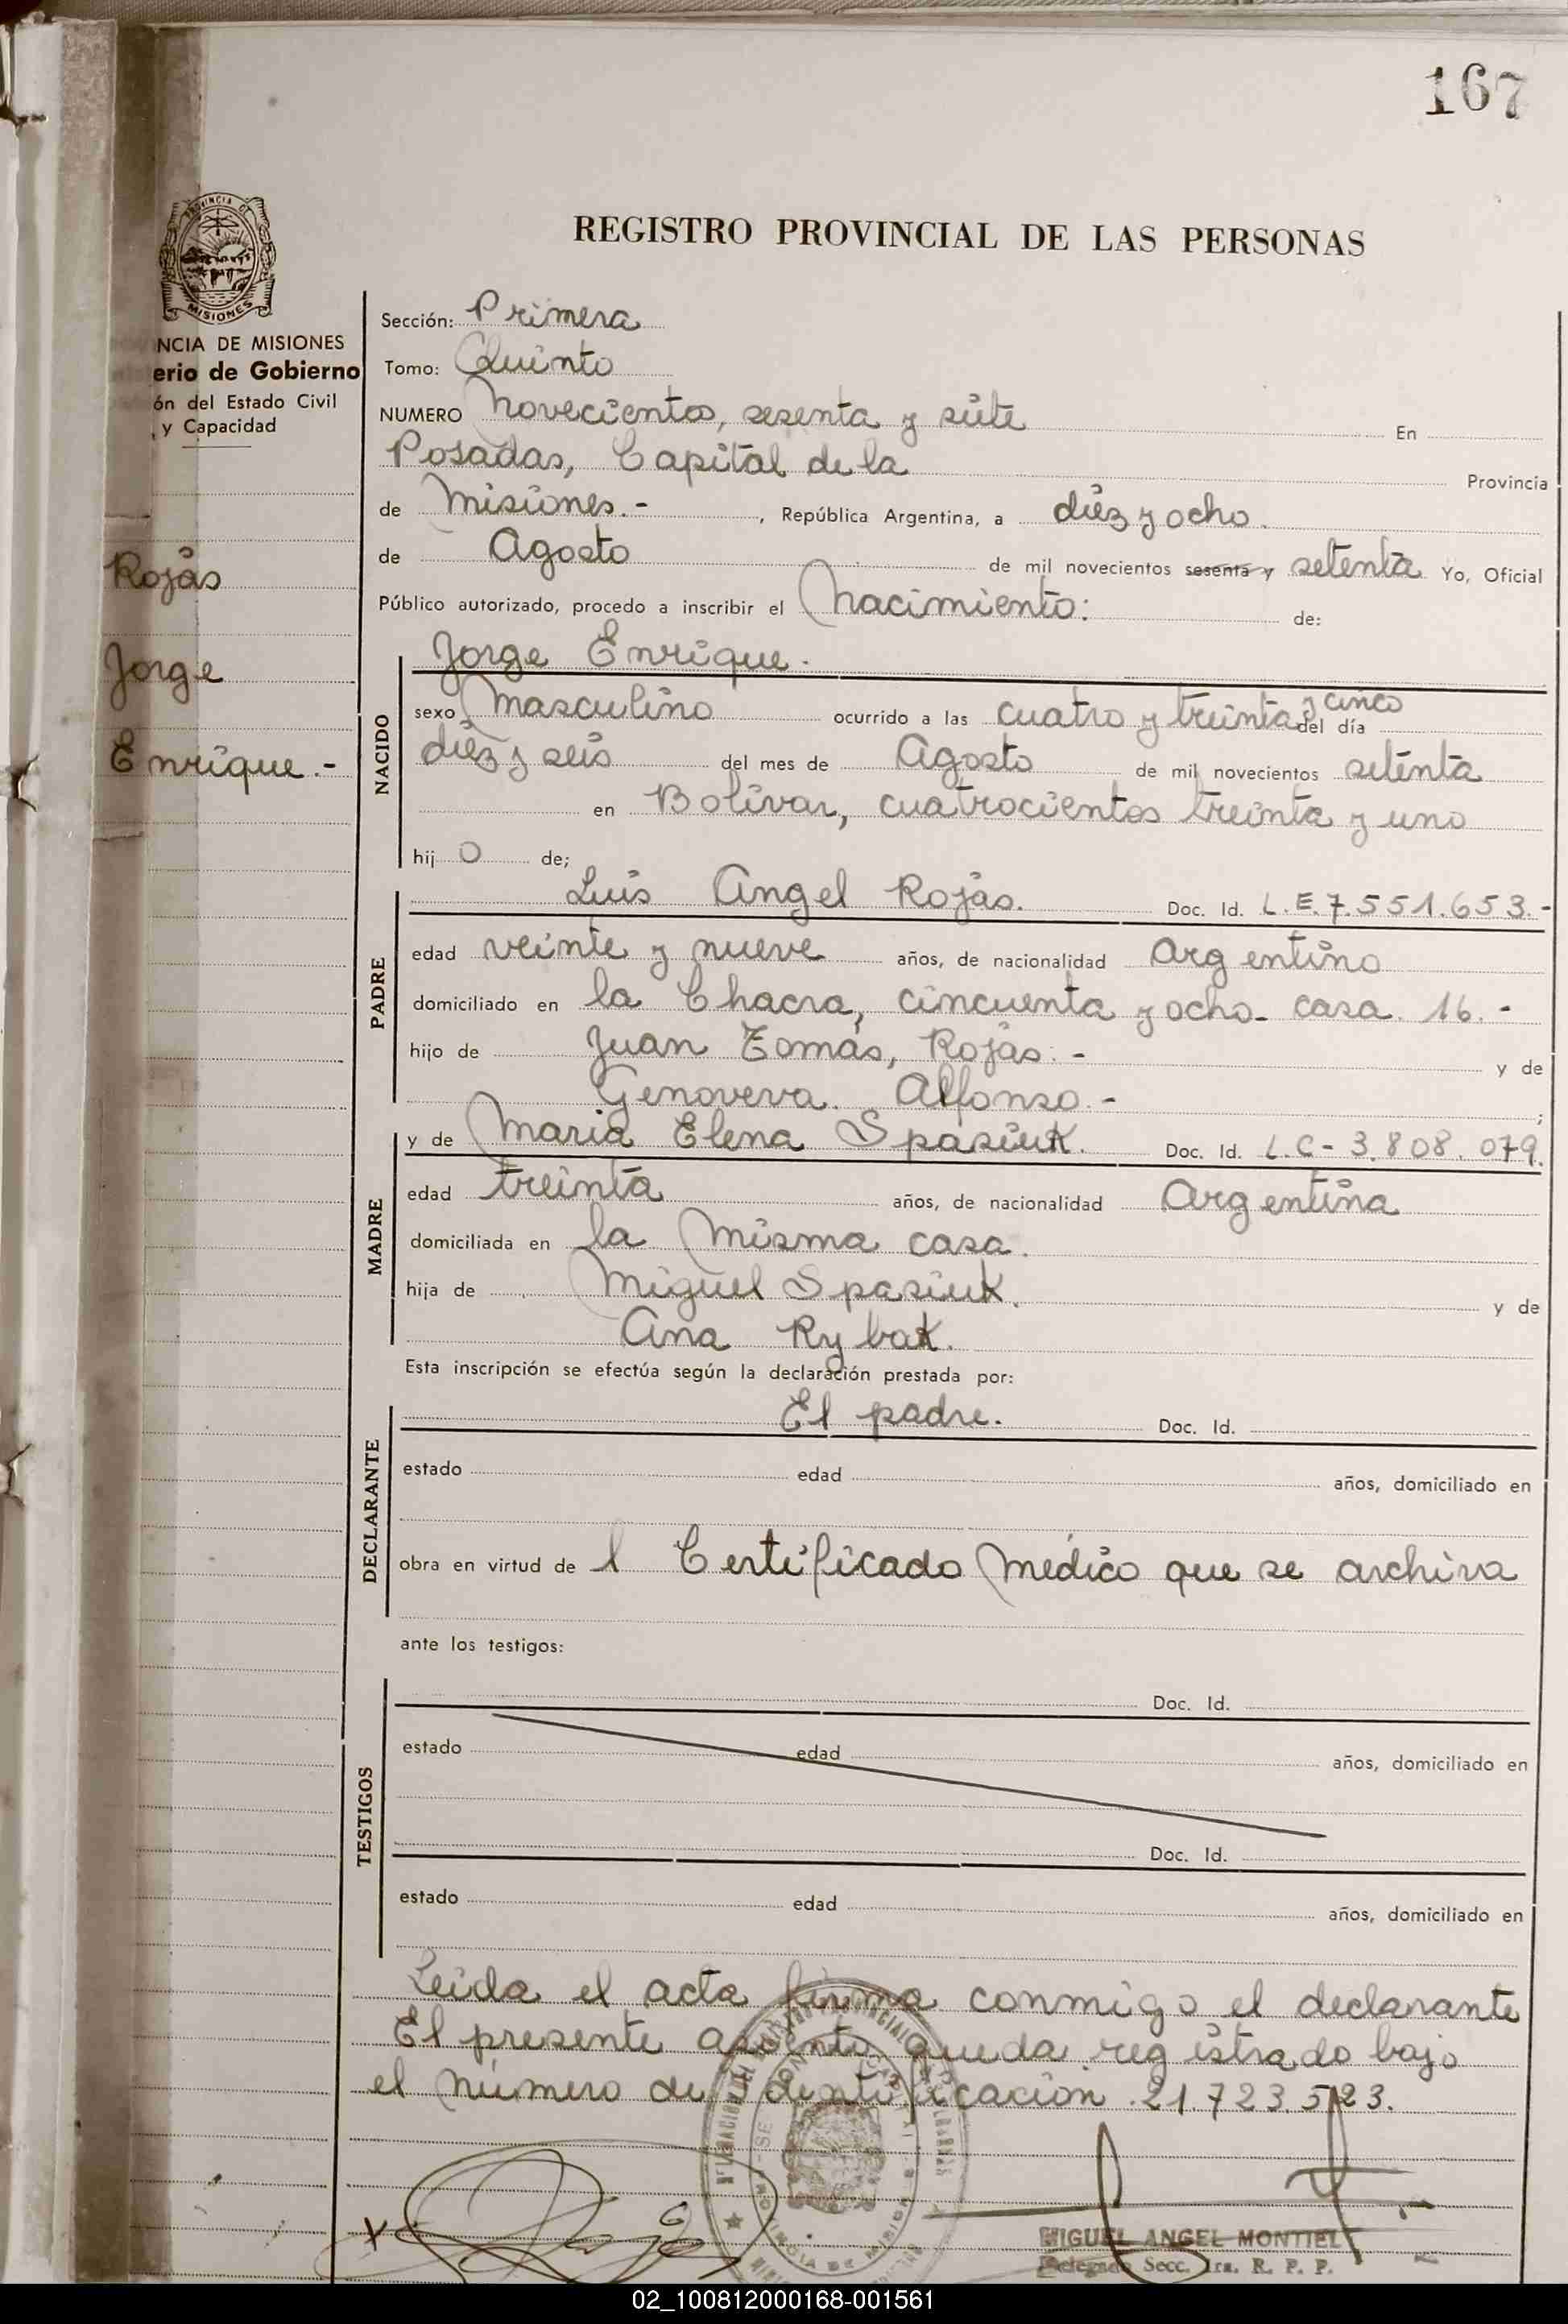 167
REGISTRO PROVINCIAL DE LAS PERSONAS
PROVINCIA DE
MISIONES
NCIA DE MISIONES
erio de Gobierno
ón del Estado Civil
y Capacidad
Rojas
Jorge
Enrique.-
Sección: Primera
Tomo: Quinto
NUMERO Novecientos, sesenta y siete En
Posadas, Capital de la Provincia
de Misiones.- , República Argentina, a diez y ocho.
de Agosto de mil novecientos sesenta y setenta Yo, Oficial
Público autorizado, procedo a inscribir el Nacimiento: de:
NACIDO
Jorge Enrique.
sexo Masculino ocurrido a las cuatro y treinta y cinco del día
diez y seis del mes de Agosto de mil novecientos setenta
en Bolívar, cuatrocientos treinta y uno
hij o de;
PADRE
Luis Angel Rojas. Doc. Id. L.E.7.551.653.-
edad veinte y nueve años, de nacionalidad Argentino
domiciliado en la Chacra, cincuenta y ocho- casa. 16.-
hijo de Juan Tomás, Rojas.- y de
Genoveva. Alfonso.- ;
MADRE
y de Maria Elena Spasiuk. Doc. Id. L.C-3.808.079.
edad treinta años, de nacionalidad Argentina
domiciliada en la Misma casa.
hija de Miguel Spasiuk. y de
Ana Rybak.
Esta inscripción se efectúa según la declaración prestada por:
DECLARANTE
El padre. Doc. Id.
estado edad años, domiciliado en
obra en virtud de l Certificado Médico que se archiva
ante los testigos:
TESTIGOS
Doc. Id.
estado edad años, domiciliado en
Doc. Id.
estado edad años, domiciliado en
Leida el acta firma conmigo el declarante
El presente asiento queda registrado bajo
el número de identificación.21.723.523.
MIGUEL ANGEL MONTIEL
Delegado Secc. 1ra. R. P. P.
02_100812000168-001561